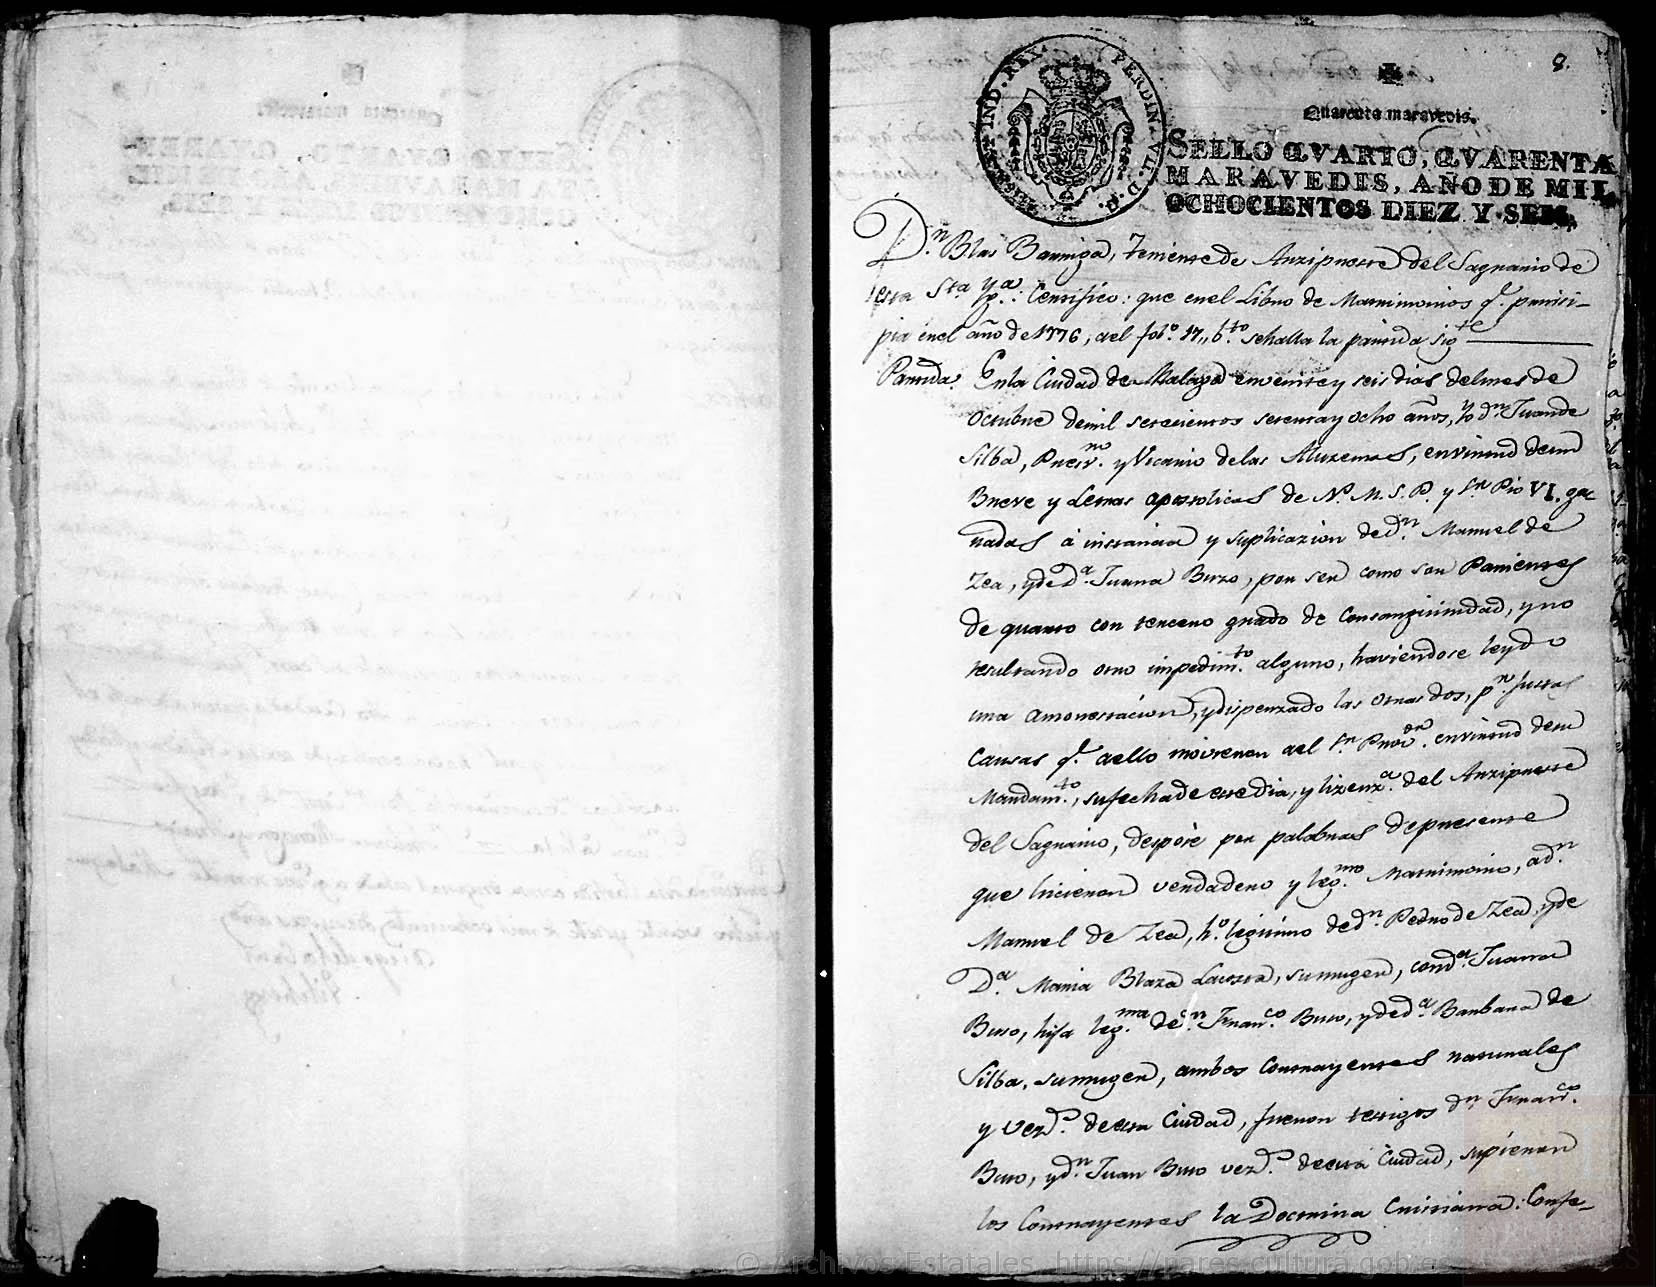 8.
Quarenta maravedis.
SELLO QVARTO, QVARENTA
MARAVEDIS, AÑO DE MIL
OCHOCIENTOS DIEZ Y SEIS.
FERDIN. VII. D. G. IND. REX.
D.n Blas Barriga, Teniente de Arziprestre del Sagrario de
esta Sta Yg.a: Certifico: que en el Libro de Matrimonios q.e prinsi-
pia en el año de 1776, a el fol.o 17,, b.to se halla la partida sig.te
Partida. En la Ciudad de Malaga en veinte y seis dias del mes de
Octubre de mil setecientos setenta y ocho años, Yo d.n Juan de
Silba, Presv.no y Vicario de las Atarzanas, en virtud de un
Breve y Letras apostolicas de N. M. S. P. y S.r Pio VI. ga-
nadas á instancia y suplicazion de d.n Manuel de
Zea, y de D.a Juana Buzo, por ser como son Parientes
de quarto con tercero grado de Consanguinidad, y no
resultando otro impedim.to alguno, haviendose leydo
una amonestacion, y dispenzado las otras dos, p.r justas
causas q.e a ello movieron a el S.r Prov.or en virtud de su
Mandam.to, su fecha de este dia, y lizenz.a del Arzipreste
del Sagrario, desposé por palabras de presente
que hicieron verdadero y leg.mo Matrimonio, a d.n
Manuel de Zea, h.o legitimo de d.n Pedro de Zea, y de
D.a Maria Blaza Lacosta, su muger, con d.a Juana
Buso, hija leg.ma de d.n Fran.co Buso, y de d.a Barbara de
Silba, su muger, ambos Contrayentes naturales
y vez.s de esta Ciudad, fueron testigos d.n Fran.co
Buso, y d.n Juan Buso vez.s de esta Ciudad, supieron
los Contrayentes la Doctrina Cristiana: Confe-
© Archivos Estatales, https://pares.cultura.gob.es